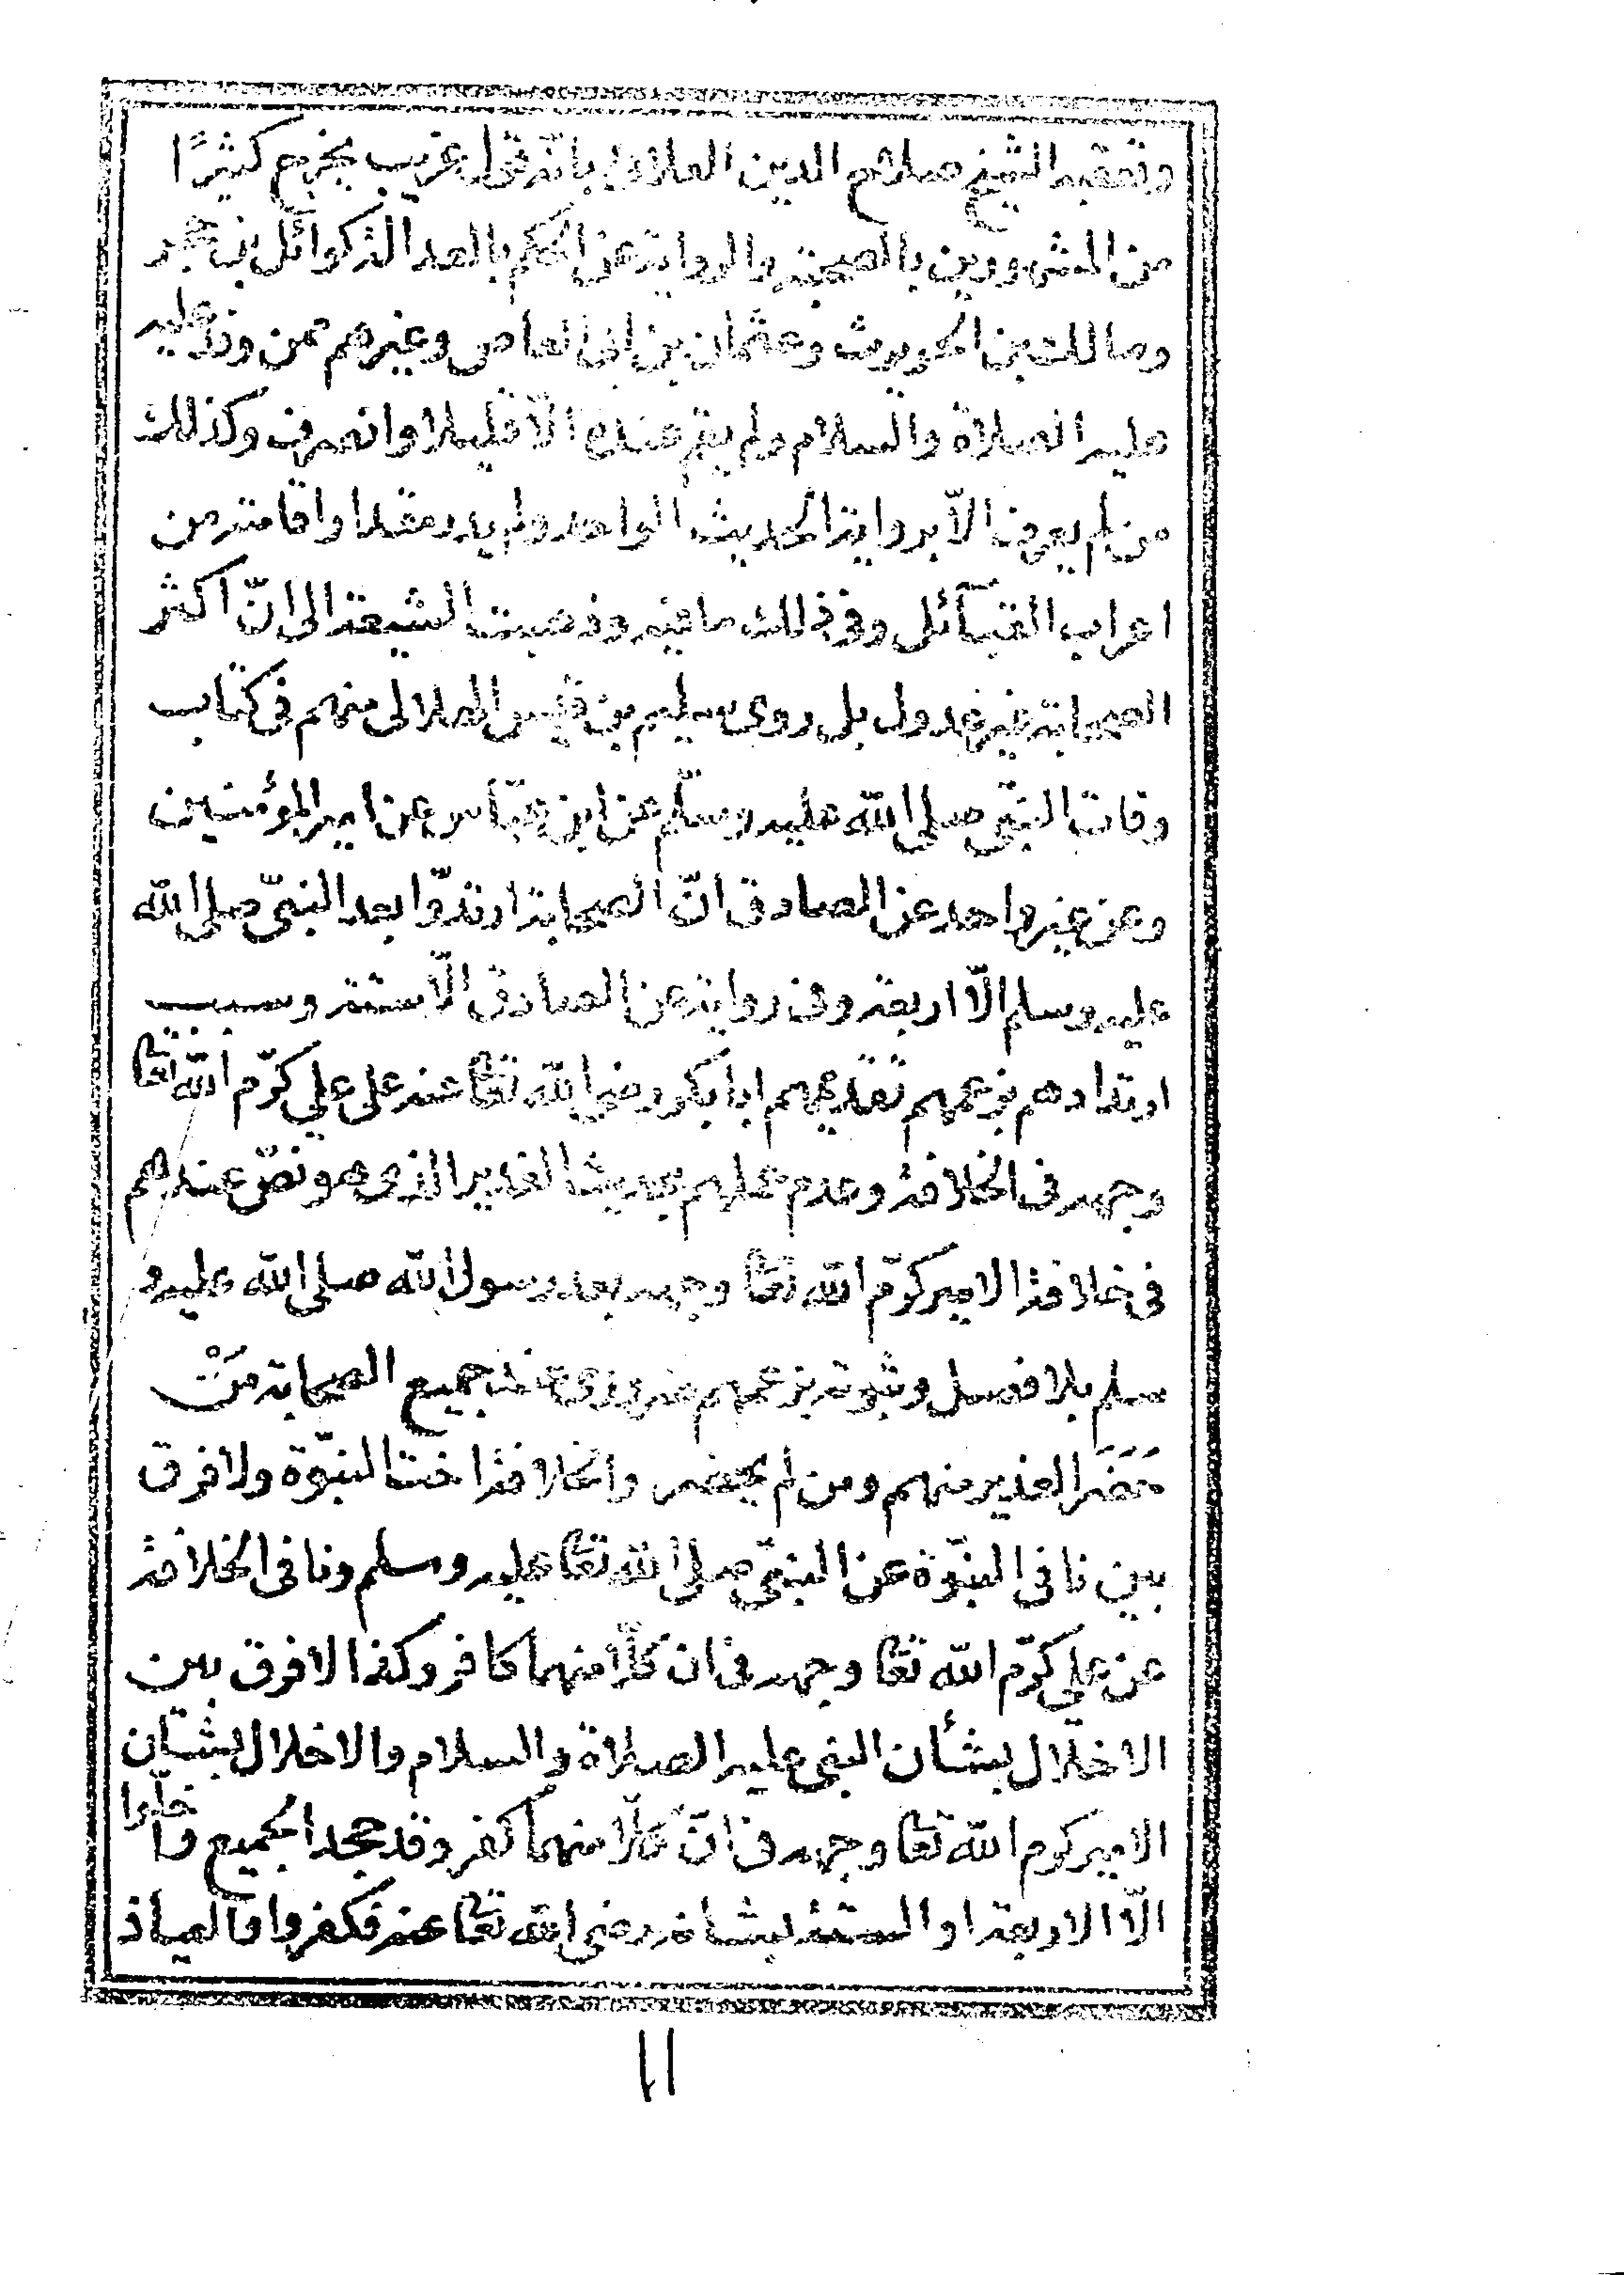 وتعقبه الشيخ صلاح الدين العلائي بانه قول غريب يخرج كثيرًا
من المشهورين بالصحبة والرواية عن الحكم بالعدالة كوائل بن حجر
ومالك بن الحويرث وعثمان بن ابى العاص وغيرهم ممن وفد عليه
عليه الصلاة والسلام ولم يقم عنده الّا قليلا وانصرف وكذلك
من لم يعرف الّا برواية الحديث الواحد ولم يدر مقدار اقامته من
اعراب القبآئل وفى ذلك ما فيه وذهبت الشيعة الى انّ اكثر
الصحابة غير عدول بل روى سليم بن قيس الهلالى منهم فى كتاب
وفات النبّي صلى الله عليه وسلّم عن ابن عبّاس عن امير المؤمنين
وعن غير واحد عن الصادق انّ الصحابة ارتدّوا بعد النبيّ صلى الله
عليه وسلم الّا اربعة وفى رواية عن الصادق الّا ستة وسبب
ارتدادهم بزعمهم تقديمهم ابا بكر رضي الله تعا عنه على علي كرّم الله تعا
وجهه فى الخلافة وعدم عملهم بحديث الغدير الذى هو نصّ عندهم
فى خلافة الامير كرّم الله تعا وجهه بعد رسول الله صلى الله عليه و
سلم بلا فصل وثبوته بزعمهم ضرورى عند جميع الصحابة مَنْ
حَضَرَ الغدير منهم ومن لم يحضر والخلافة اخت النبّوة ولا فرق
بين نافى النبّوة عن النبيّ صلى الله تعا عليه وسلم ونافى الخلافة
عن علي كرّم الله تعا وجهه فى ان كلّا منهما كافر وكذا لا فرق بين
الاخلال بشأن النبى عليه الصلاة والسلام والاخلال بشأن
الامير كرم الله تعا وجهه فى انّ كلّا منهما كفر وقد جحد الجميع واخلّوا
الّا الاربعة او الستة بشانه رضى الله تعا عنه فكفروا والعياذ
١١